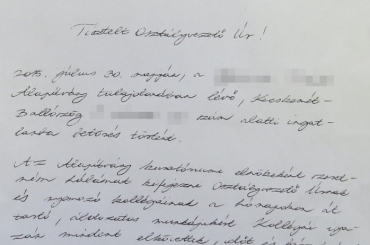 Tisztelt Osztályvezető Úr!
2015. július 30. napján, a
Alapítvány tulajdonában lévő, Kecskemét-
Ballószög szám alatti ingat-
lanba betörés történt.
Az Alapítvány kuratóriuma elnökeként szeret-
ném hálámat kifejezni Osztályvezető Úrnak
és nyomozó kollégáinak a hónapokon át
tartó, áldozatos munkájukért. Kollégái iga-
zán mindent elkövettek, időt és